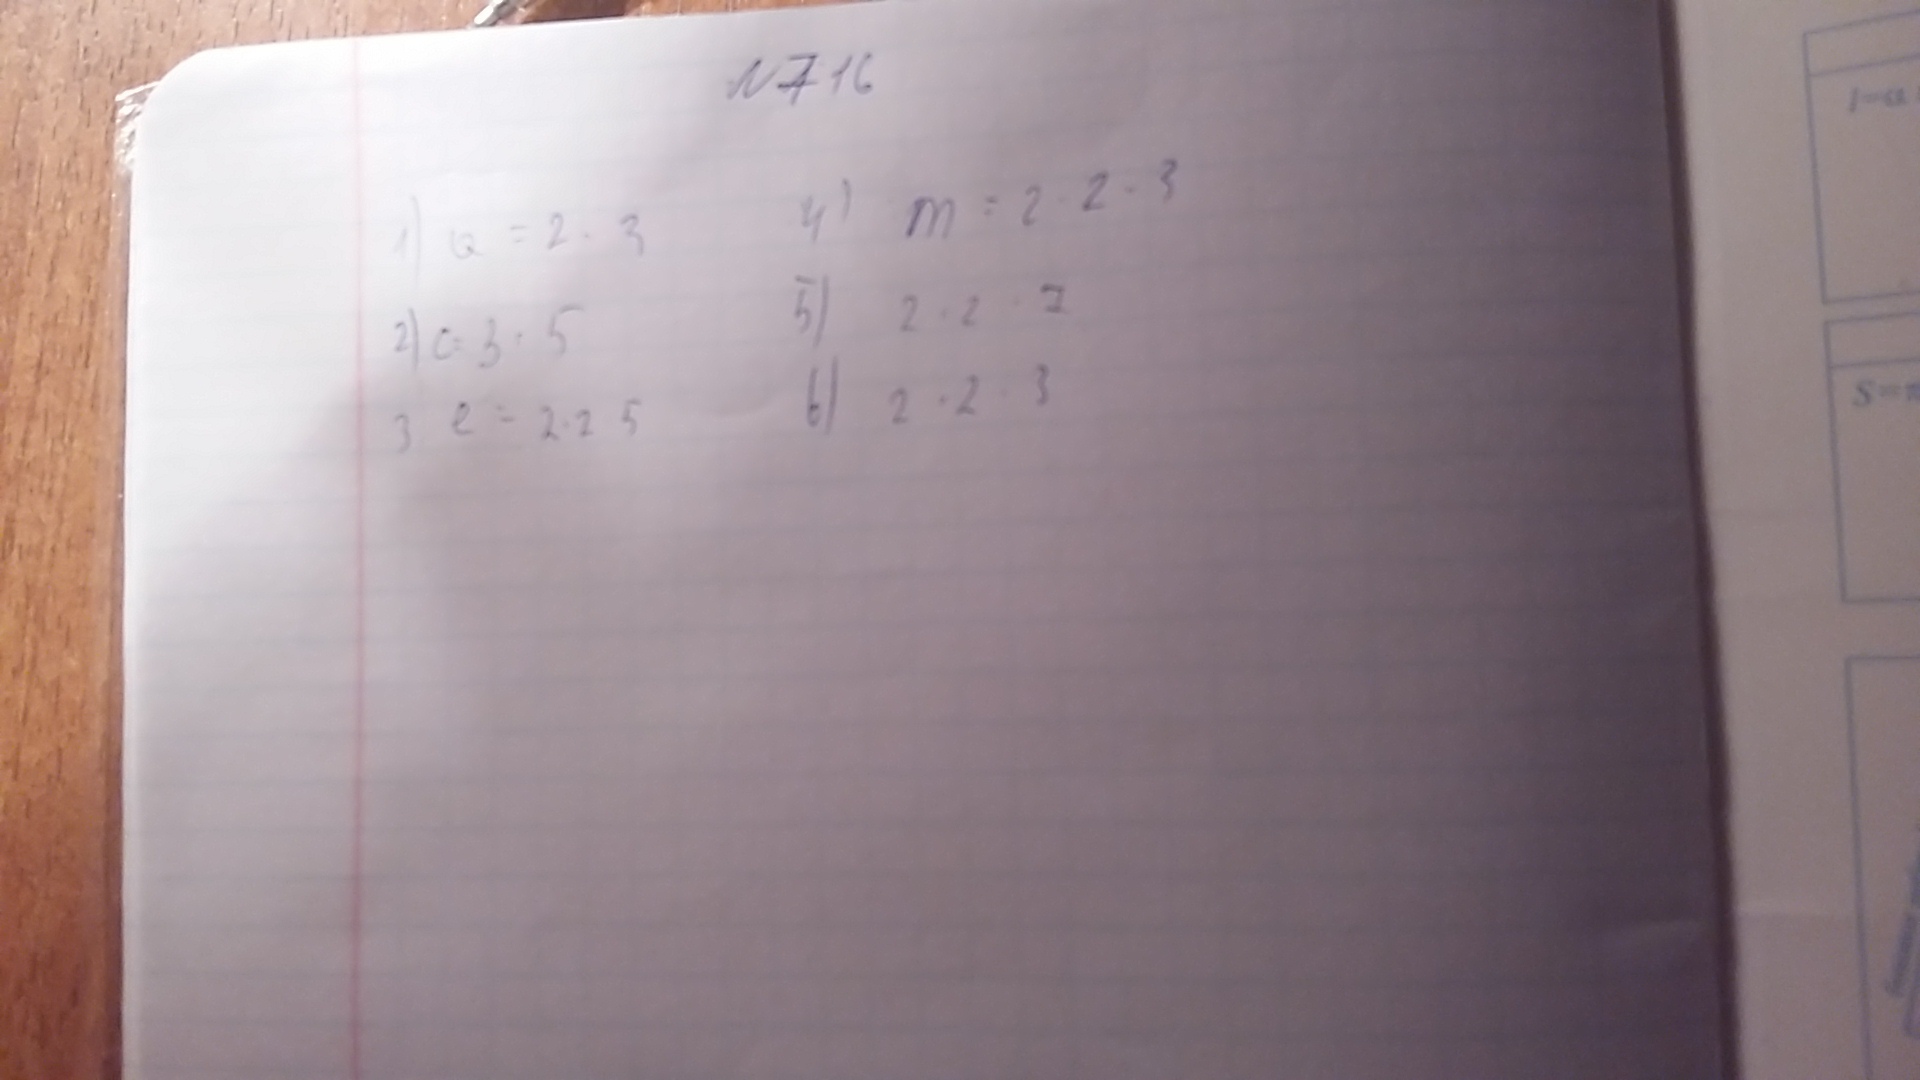 N716
1) a = 2 · 3
2) c= 3 · 5
3 e = 2·2 5
4) m = 2 · 2 · 3
5) 2 · 2 · 7
6) 2 · 2 · 3
l=a
S=π